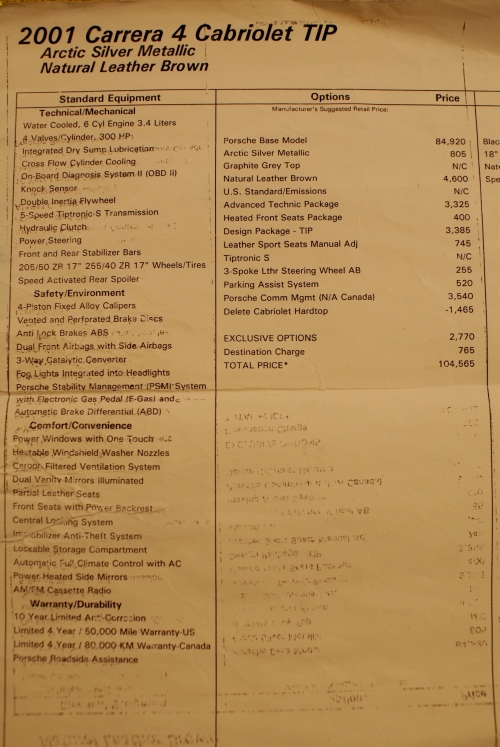 2001 Carrera 4 Cabriolet TIP
Arctic Silver Metallic
Natural Leather Brown
Standard Equipment
Technical/Mechanical
Water Cooled, 6 Cyl Engine 3.4 Liters
4 Valves/Cylinder, 300 HP
Integrated Dry Sump Lubrication
Cross Flow Cylinder Cooling
On-Board Diagnosis System II (OBD II)
Knock Sensor
Double Inertia Flywheel
5-Speed Tiptronic-S Transmission
Hydraulic Clutch
Power Steering
Front and Rear Stabilizer Bars
205/50 ZR 17" 255/40 ZR 17" Wheels/Tires
Speed Activated Rear Spoiler
Safety/Environment
4-Piston Fixed Alloy Calipers
Vented and Perforated Brake Discs
Anti Lock Brakes ABS
Dual Front Airbags with Side Airbags
3-Way Catalytic Converter
Fog Lights Integrated into Headlights
Porsche Stability Management (PSM) System
with Electronic Gas Pedal (E-Gas) and
Automatic Brake Differential (ABD)
Comfort/Convenience
Power Windows with One Touch
Heatable Windshield Washer Nozzles
Carbon Filtered Ventilation System
Dual Vanity Mirrors Illuminated
Partial Leather Seats
Front Seats with Power Backrest
Central Locking System
Immobilizer Anti-Theft System
Lockable Storage Compartment
Automatic Full Climate Control with AC
Power Heated Side Mirrors
AM/FM Cassette Radio
Warranty/Durability
10 Year Limited Anti-Corrosion
Limited 4 Year / 50,000 Mile Warranty-US
Limited 4 Year / 80,000 KM Warranty-Canada
Porsche Roadside Assistance
Options Price
Manufacturer's Suggested Retail Price:
Porsche Base Model 84,920
Arctic Silver Metallic 805
Graphite Grey Top N/C
Natural Leather Brown 4,600
U.S. Standard/Emissions N/C
Advanced Technic Package 3,325
Heated Front Seats Package 400
Design Package - TIP 3,385
Leather Sport Seats Manual Adj 745
Tiptronic S N/C
3-Spoke Lthr Steering Wheel AB 255
Parking Assist System 520
Porsche Comm Mgmt (N/A Canada) 3,540
Delete Cabriolet Hardtop -1,465
EXCLUSIVE OPTIONS 2,770
Destination Charge 765
TOTAL PRICE* 104,565
Blac
18"
Nat
Spe